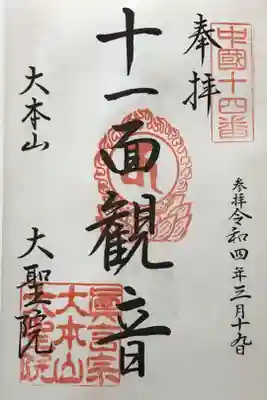 中國十四番
奉拝
参拝令和四年三月十九日
十一面観音
大本山
大聖院
真言宗
大本山
大聖院